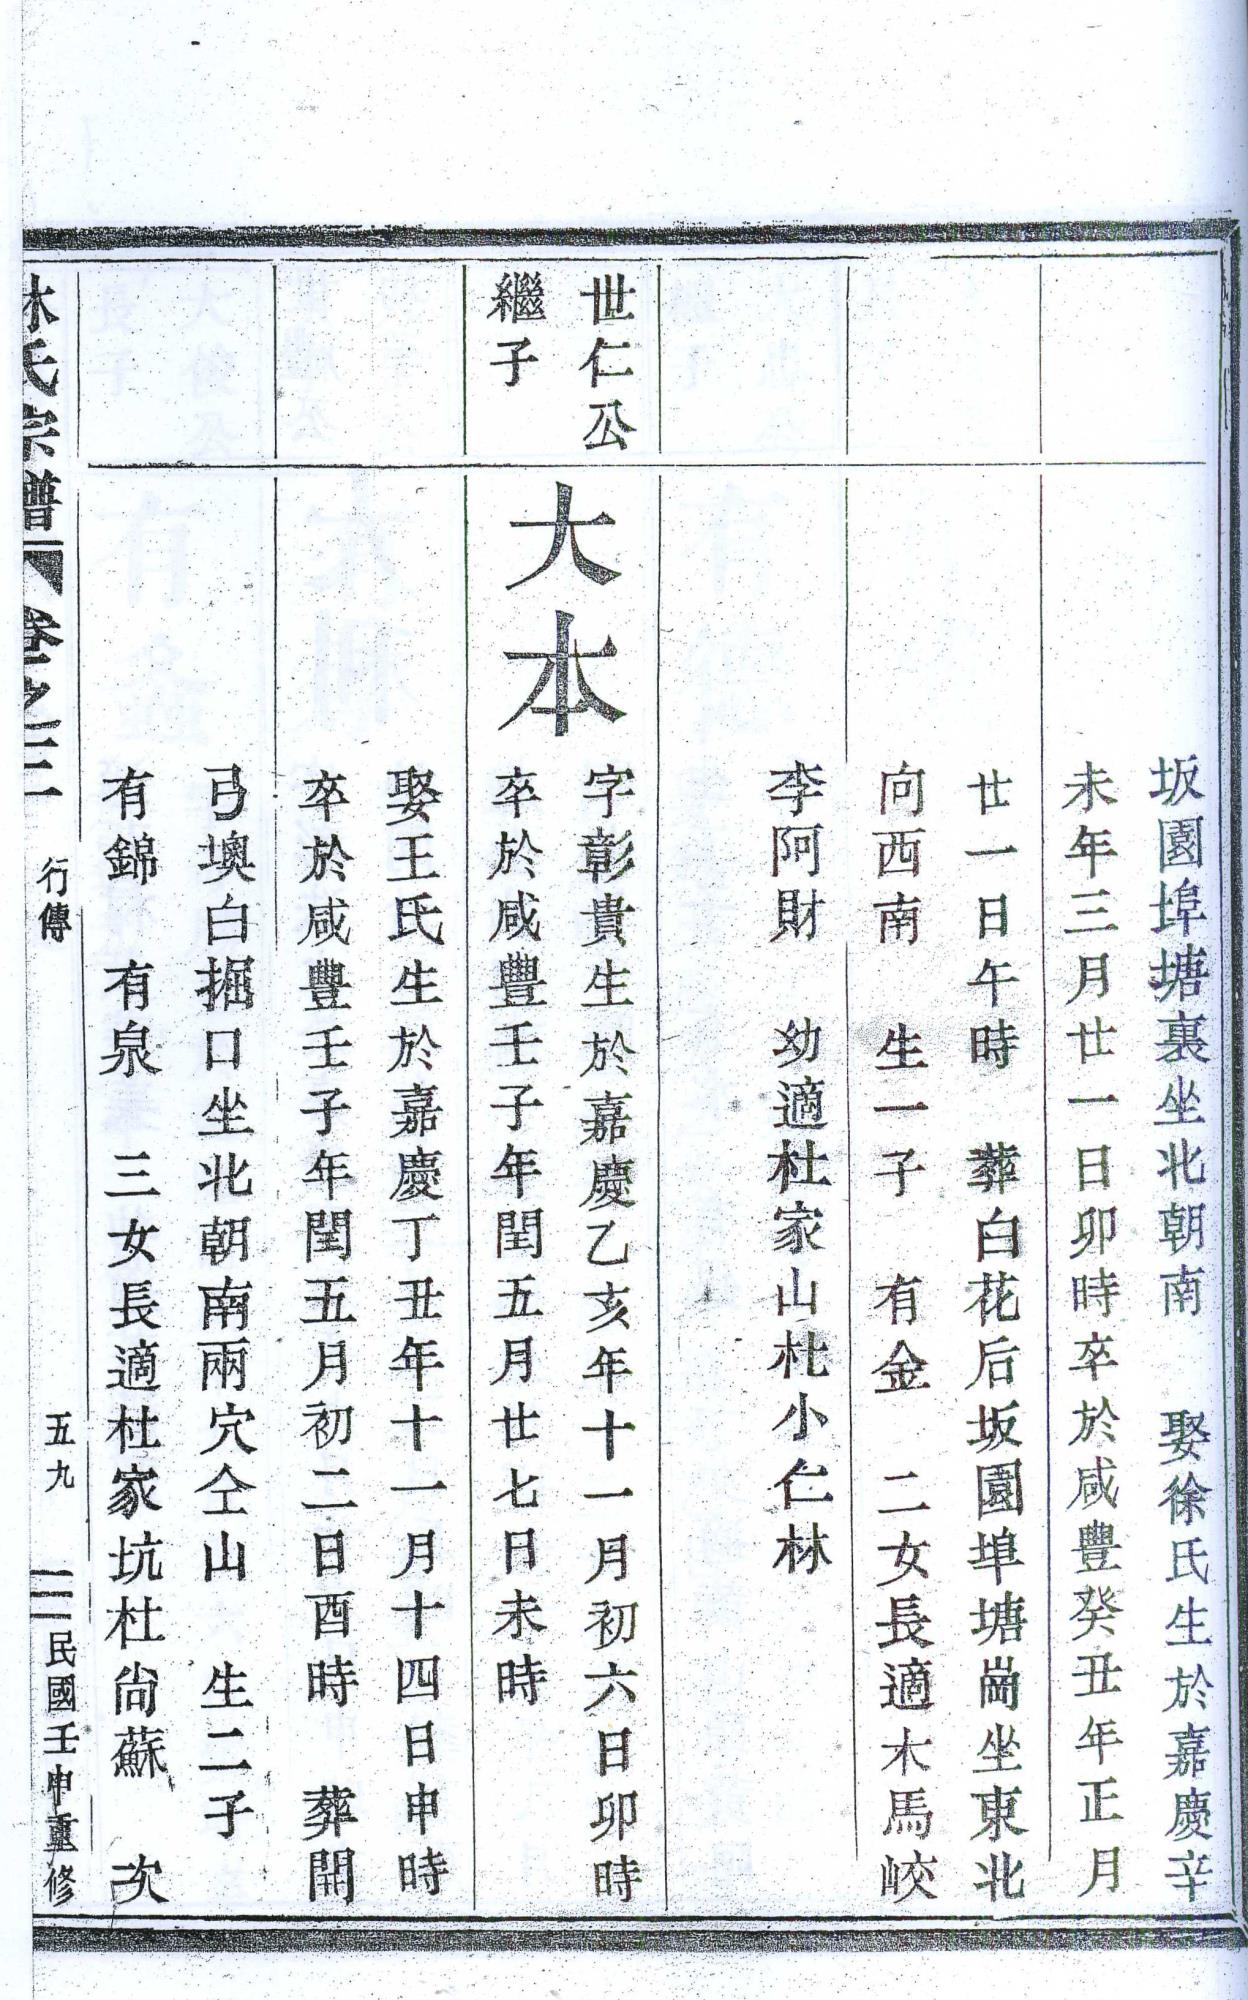 坂園埠塘裏坐北朝南　娶徐氏生於嘉慶辛
未年三月廿一日卯時卒於咸豐癸丑年正月
廿一日午時　葬白花后坂園埠塘崗坐東北
向西南　生一子　有金　二女長適木馬峧
李阿財　幼適杜家山杜小仁林
世仁公
繼子
大本
字彰貴生於嘉慶乙亥年十一月初六日卯時
卒於咸豐壬子年閏五月廿七日未時
娶王氏生於嘉慶丁丑年十一月十四日申時
卒於咸豐壬子年閏五月初二日酉時　葬開
弓墺白掘口坐北朝南兩穴仝山　生二子
有錦　有泉　三女長適杜家坑杜尙蘇　次
林氏宗譜　卷之三　行傳　五九　民國壬申重修